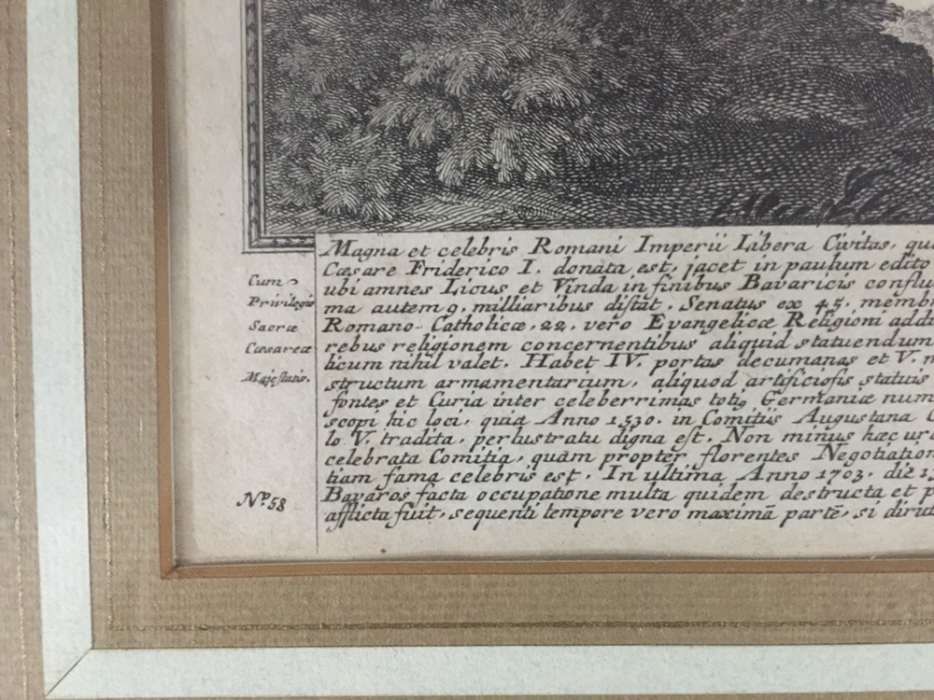 Cum
Privilegio
Sacræ
Cæsareæ
Majestatis.
N.º 58
Magna et celebris Romani Imperii Libera Civitas, qu
Cæsare Friderico I. donata est, jacet in paulum edito
ubi amnes Licus et Vinda in finibus Bavaricis conflu
ma autem 9. milliaribus distat. Senatus ex 45. memb
Romano-Catholicæ, 22. vero Evangelicæ Religioni addi
rebus religionem concernentibus aliquid statuendum
licum nihil valet. Habet IV. portas decumanas et V. m
structum armamentarium, aliquod artificiosis statuis
fontes et Curia inter celeberrimas totiq Germaniæ num
scopi hic loci, quia Anno 1530. in Comitiis Augustana C
lo V. tradita, perlustratu digna est. Non minus hæc ur
celebrata Comitia, quàm propter florentes Negotiation
tiam fama celebris est. In ultima Anno 1703. die 1
Bavaros facta occupatione multa quidem destructa et p
afflicta fuit, sequenti tempore vero maximā partē, si dirut